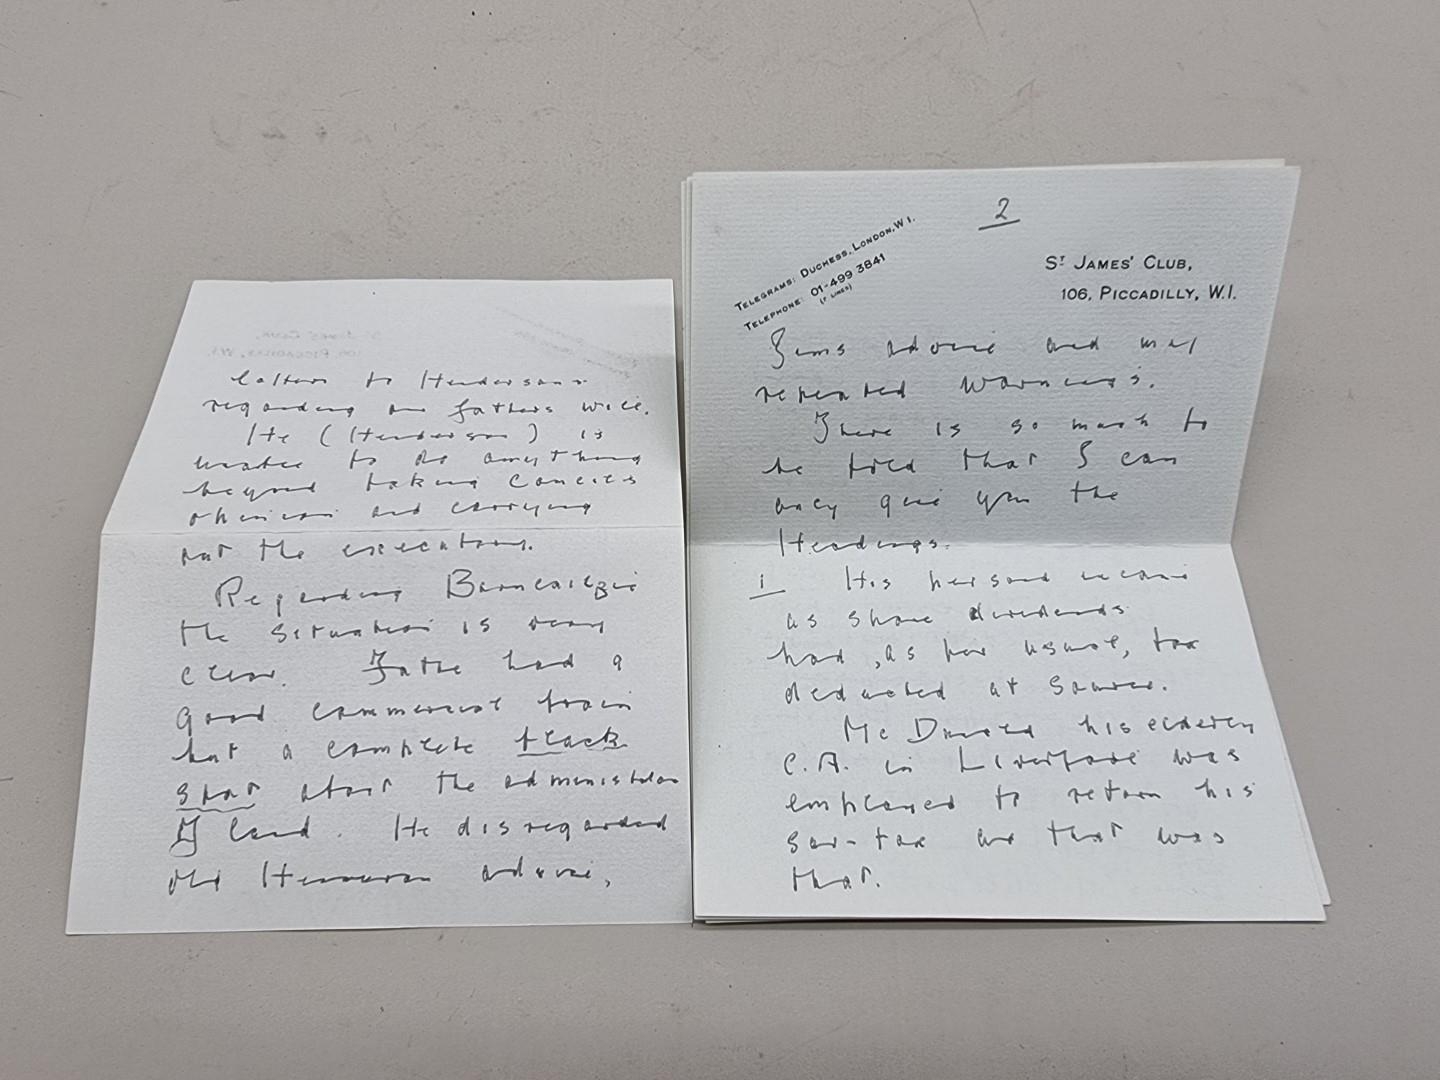 letters to Hendersons
regarding our fathers will.
He (Henderson) is
unable to do anything
beyond taking Councils
opinion and carrying
out the executory.
Regarding
the situation is very
clear. Father had a
good commercial brain
but a complete black
spot about the administration
of land. He disregarded
old advice,
2
TELEGRAMS: DUCHESS, LONDON, W1.
TELEPHONE: 01-499 3841
(7 LINES)
ST JAMES' CLUB,
106, PICCADILLY, W.I.
Sims advice and my
repeated warnings.
There is so much to
be told that I can
only give you the
Headings.
1 His personal income
as share dividends
had, as per usual, tax
deducted at source.
Mc Donald his elderly
C.A. in Liverpool was
employed to return his
sur-tax and that was
that.